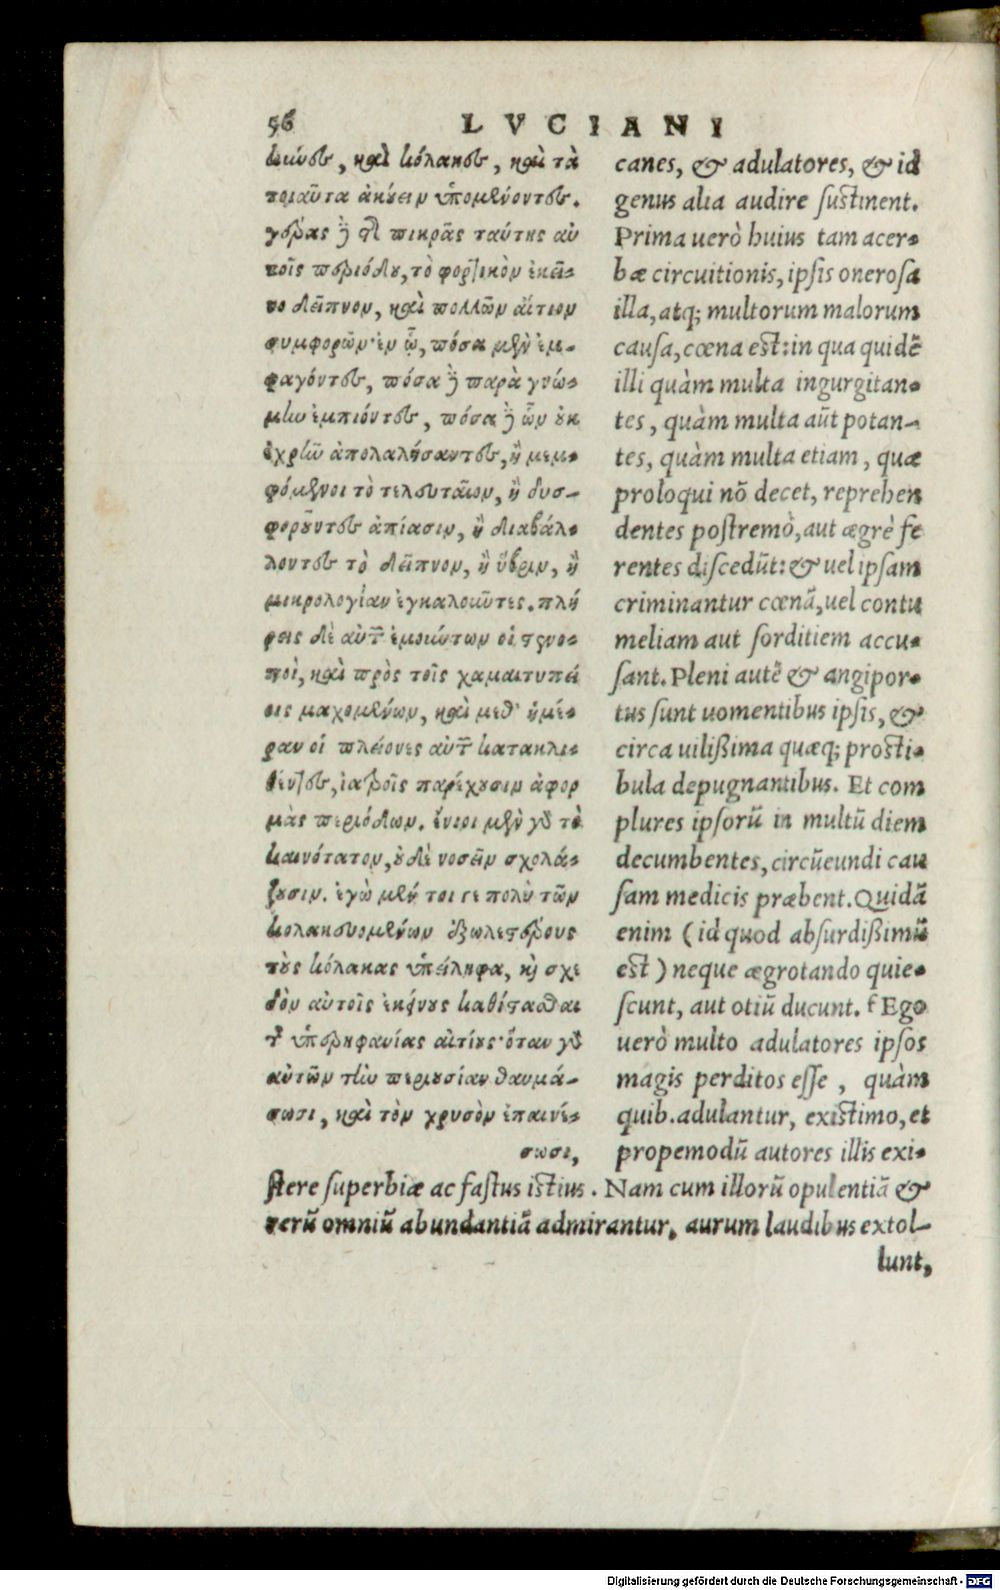 56 LVCIANI
κύνες, καὶ κόλακες, καὶ τὰ
τοιαῦτα ἀκούειν ὑπομένοντες.
γέρας δὲ τῆς πικρᾶς ταύτης αὐ
τοῖς περιόδου, τὸ φορτικὸν ἐκεῖ-
νο δεῖπνον, καὶ πολλῶν αἴτιον
συμφορῶν· ἐν ᾧ, πόσα μὲν ἐμ-
φαγόντες, πόσα δὲ παρὰ γνώ-
μην ἐμπιόντες, πόσα δὲ ὧν οὐκ
ἐχρῆν ἀπολαλήσαντες, ἢ μεμ-
φόμενοι τὸ τελευταῖον, ἢ δυσ-
φοροῦντες ἀπίασιν, ἢ διαβάλ-
λοντες τὸ δεῖπνον, ἢ ὕβριν, ἢ
μικρολογίαν ἐγκαλοῦντες. πλή
ρεις δὲ αὐτῶν ἐμούντων οἱ στενω-
ποὶ, καὶ πρὸς τοῖς χαμαιτυπεί
οις μαχομένων, καὶ μεθ' ἡμέ-
ραν οἱ πλείονες αὐτῶν κατακλι-
θέντες, ἰατροῖς παρέχουσιν ἀφορ
μὰς περιόδων. ἔνιοι μὲν γὰρ τὸ
καινότατον, οὐδὲ νοσεῖν σχολά-
ζουσιν. ἐγὼ μέν τοι γε πολὺ τῶν
κολακευομένων ἐξωλεστέρους
τοὺς κόλακας ὑπείληφα, καὶ σχε
δὸν αὐτοῖς ἐκείνους καθίστασθαι
τῆς ὑπερηφανίας αἰτίους· ὅταν γὰρ
αὐτῶν τὴν περιουσίαν θαυμά-
σωσι, καὶ τὸν χρυσὸν ἐπαινέ-
σωσι,
canes, & adulatores, & id
genus alia audire sustinent.
Prima uerò huius tam acer-
bæ circuitionis, ipsis onerosa
illa, atq; multorum malorum
causa, cœna est: in qua quidẽ
illi quàm multa ingurgitan-
tes, quàm multa aũt potan-
tes, quàm multa etiam, quæ
proloqui nõ decet, reprehen
dentes postremò, aut ægrè fe
rentes discedũt: & uel ipsam
criminantur cœnã, uel contu
meliam aut sorditiem accu-
sant. Pleni autẽ & angipor-
tus sunt uomentibus ipsis, &
circa uilißima quæq; prosti-
bula depugnantibus. Et com
plures ipsorũ in multũ diem
decumbentes, circũeundi cau
sam medicis præbent. Quidã
enim (id quod absurdißimũ
est) neque ægrotando quie-
scunt, aut otiũ ducunt. f Ego
uerò multo adulatores ipsos
magis perditos esse, quàm
quib. adulantur, existimo, et
propemodũ autores illis exi-
stere superbiæ ac fastus istius. Nam cum illorũ opulentiã &
rerũ omniũ abundantiã admirantur, aurum laudibus extol-
lunt,
Digitalisierung gefördert durch die Deutsche Forschungsgemeinschaft - DFG